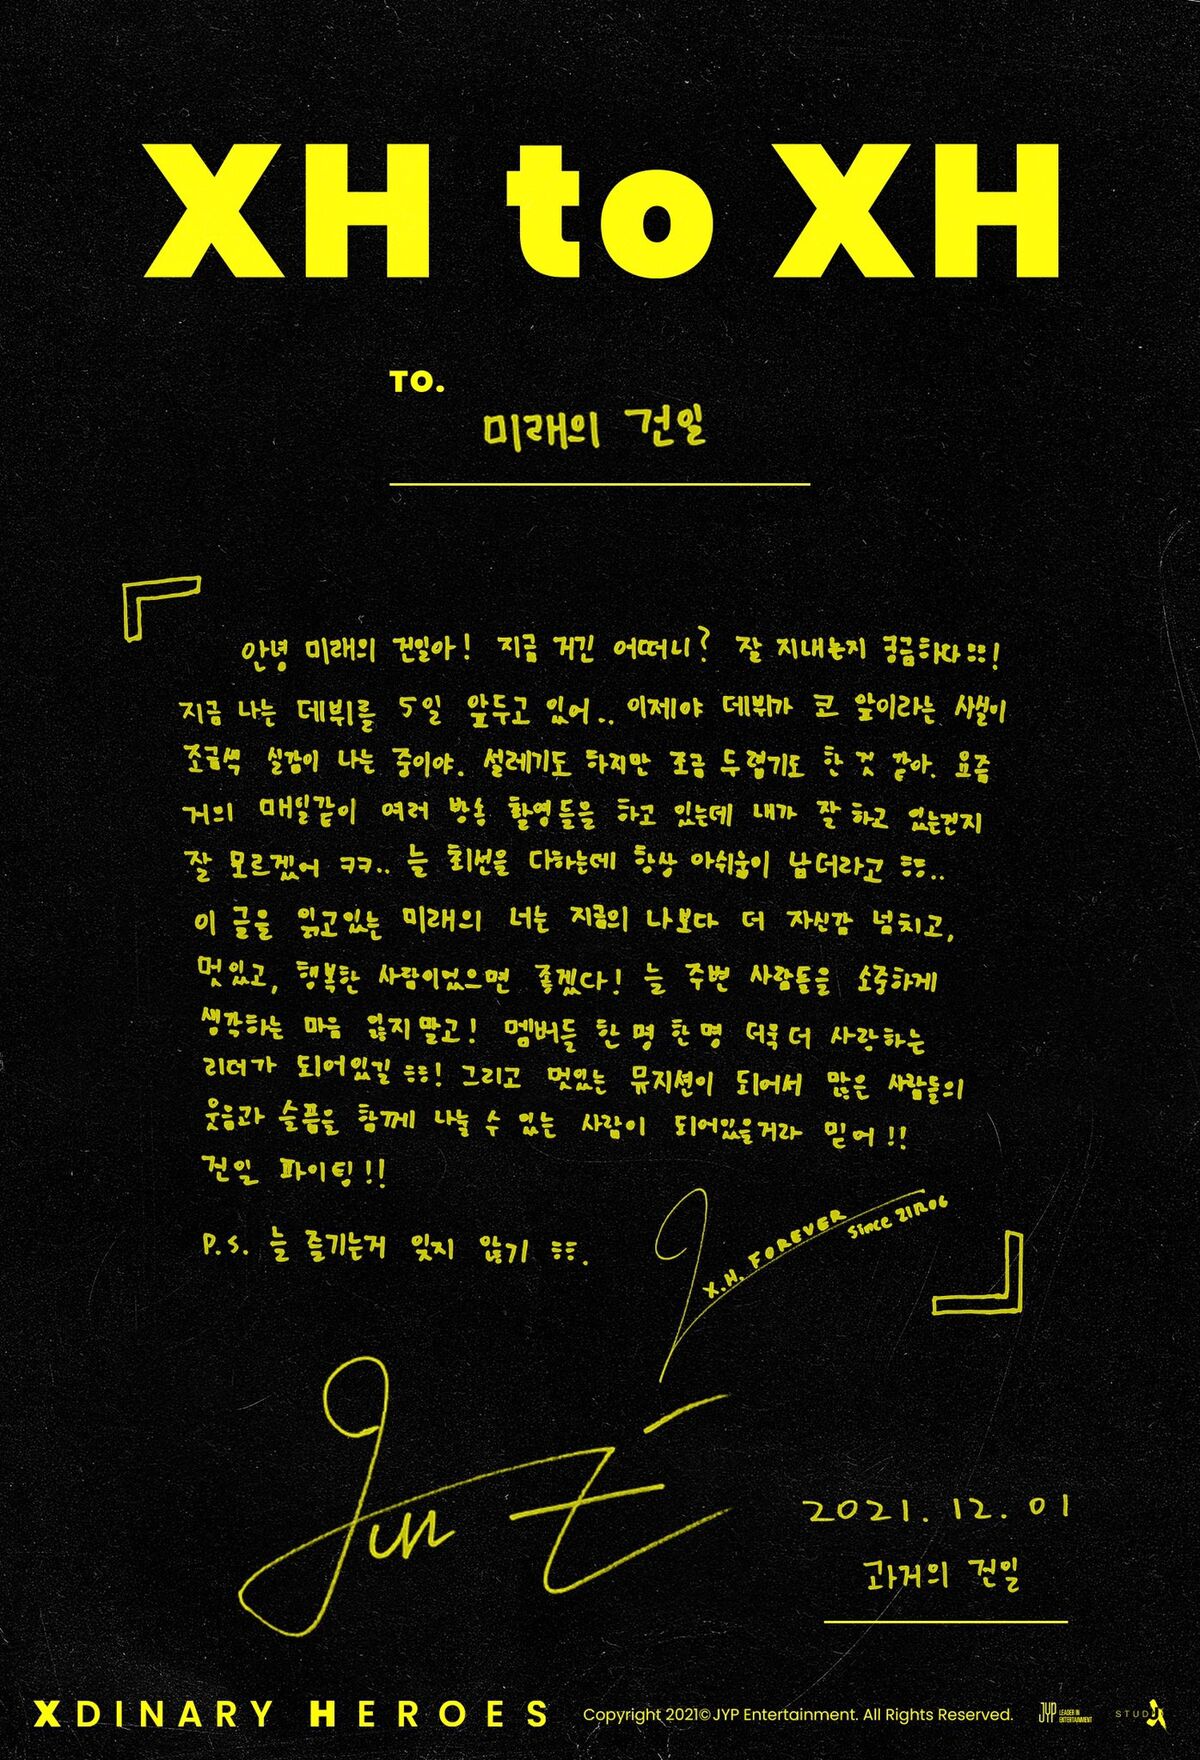 XH to XH
TO.
미래의 건일
안녕 미래의 건일아! 지금 거긴 어떠니? 잘 지내는지 궁금하다ㅎㅎ!
지금 나는 데뷔를 5일 앞두고 있어.. 이제야 데뷔가 코 앞이라는 사실이
조금씩 실감이 나는 중이야. 설레기도 하지만 조금 두렵기도 한 것 같아. 요즘
거의 매일같이 여러 방송 촬영들을 하고 있는데 내가 잘 하고 있는건지
잘 모르겠어 ㅋㅋ.. 늘 최선을 다하는데 항상 아쉬움이 남더라고 ㅎㅎ..
이 글을 읽고있는 미래의 너는 지금의 나보다 더 자신감 넘치고,
멋있고, 행복한 사람이었으면 좋겠다! 늘 주변 사람들을 소중하게
생각하는 마음 잃지말고! 멤버들 한 명 한 명 더욱 더 사랑하는
리더가 되어있길 ㅎㅎ! 그리고 멋있는 뮤지션이 되어서 많은 사람들의
웃음과 슬픔을 함께 나눌 수 있는 사람이 되어있을거라 믿어!!
건일 파이팅!!
P.S. 늘 즐기는거 잊지 않기 ㅎㅎ.
X.H. FOREVER
Since 21R06
2021. 12. 01
과거의 건일
XDINARY HEROES
Copyright 2021© JYP Entertainment. All Rights Reserved.
JYP LEADER IN ENTERTAINMENT